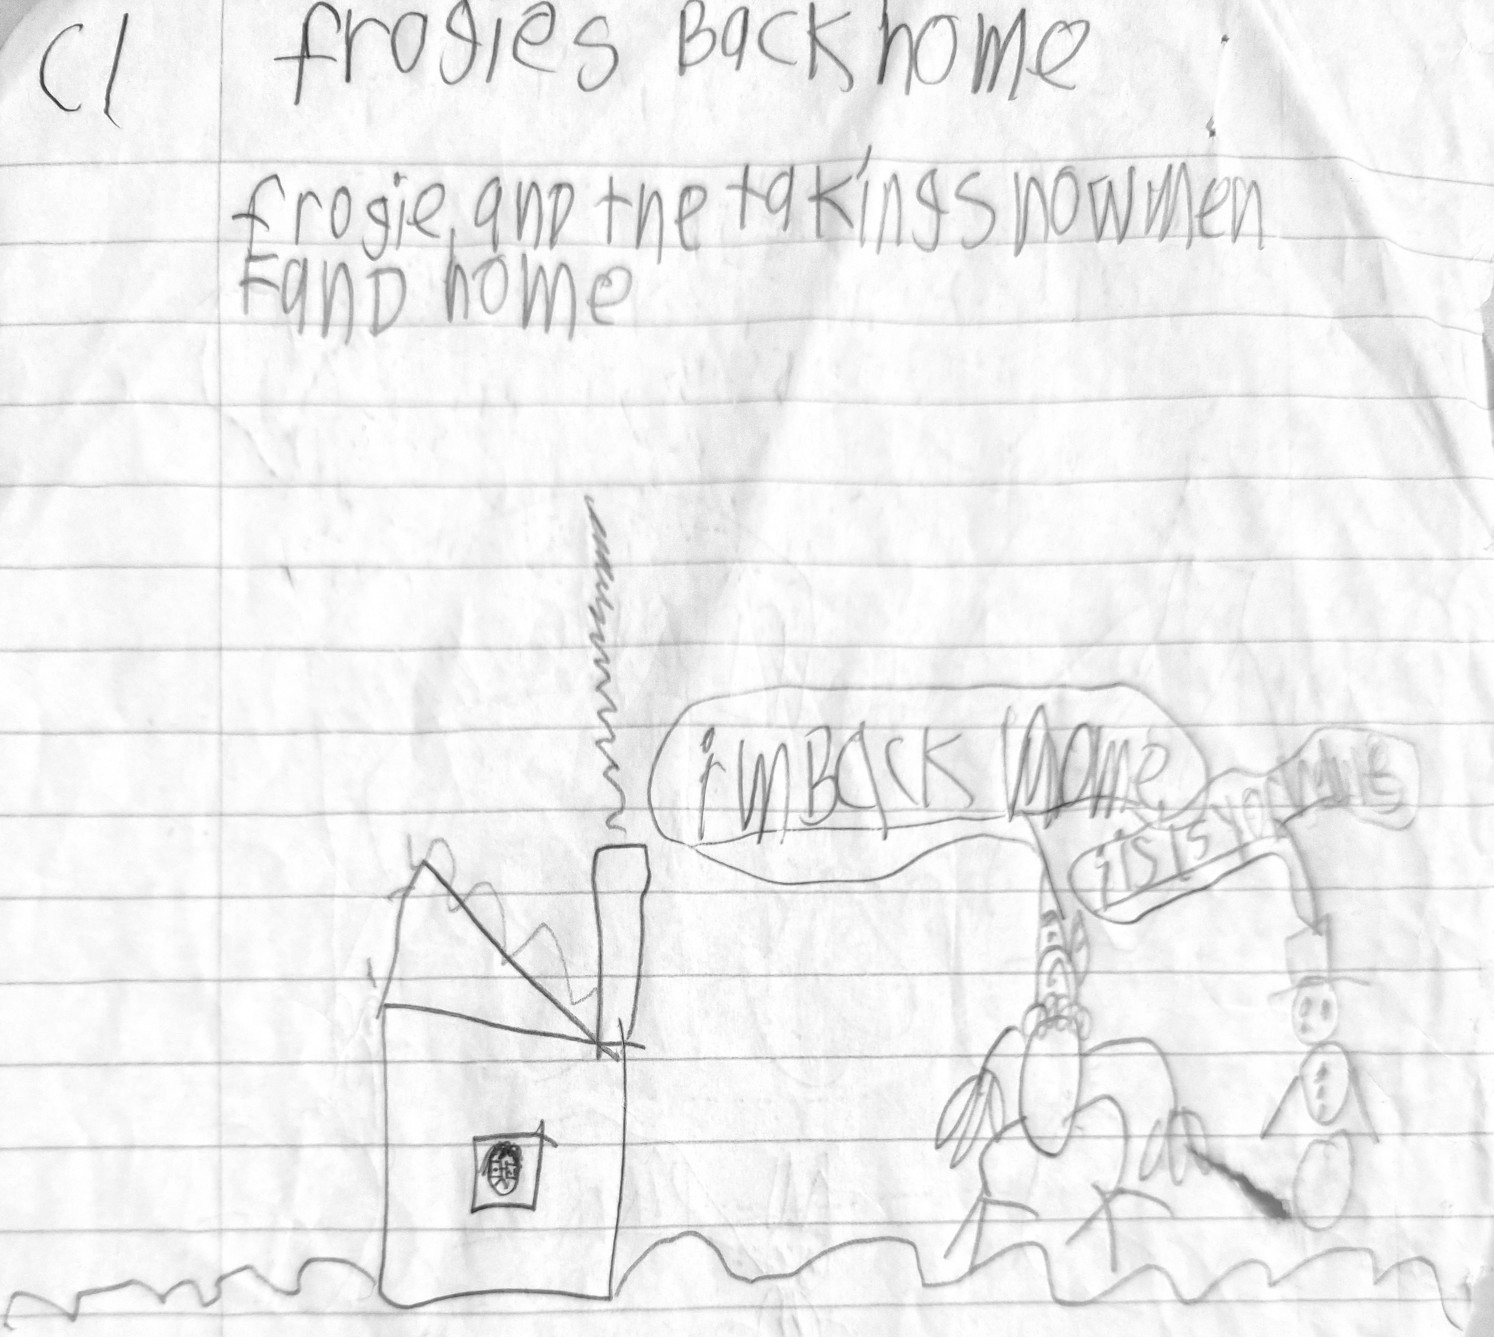 C1 frogies Back home
frogie, and the takingsnowmen
Fand home
imBack home